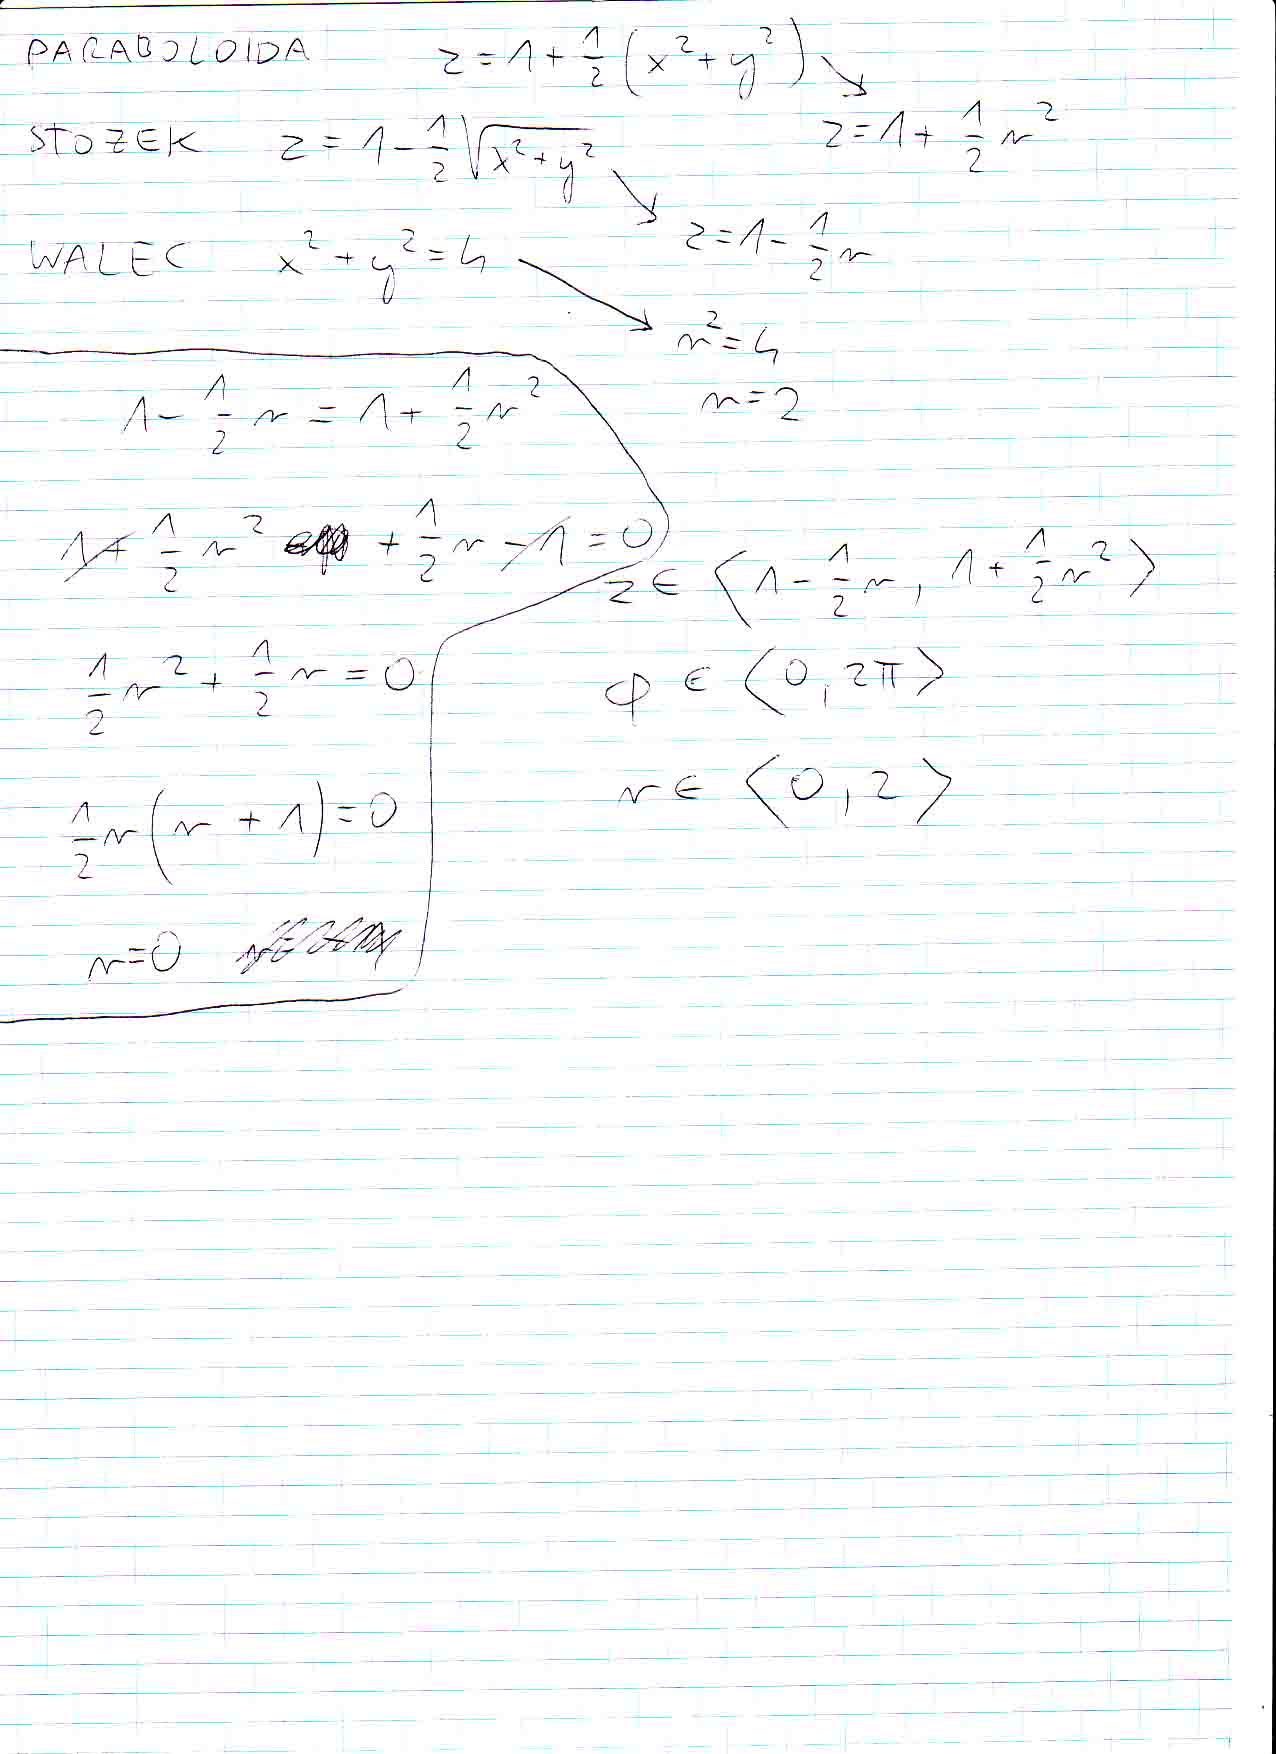 PARABOLOIDA z = 1 + 1/2 (x² + y²)
z = 1 + 1/2 r²
STOZEK z = 1 - 1/2 √(x² + y²)
z = 1 - 1/2 r
WALEC x² + y² = 4
r² = 4
r = 2
1 - 1/2 r = 1 + 1/2 r²
1 + 1/2 r² + 1/2 r - 1 = 0
z ∈ ⟨1 - 1/2 r, 1 + 1/2 r²⟩
1/2 r² + 1/2 r = 0
φ ∈ ⟨0, 2π⟩
r ∈ ⟨0, 2⟩
1/2 r (r + 1) = 0
r = 0